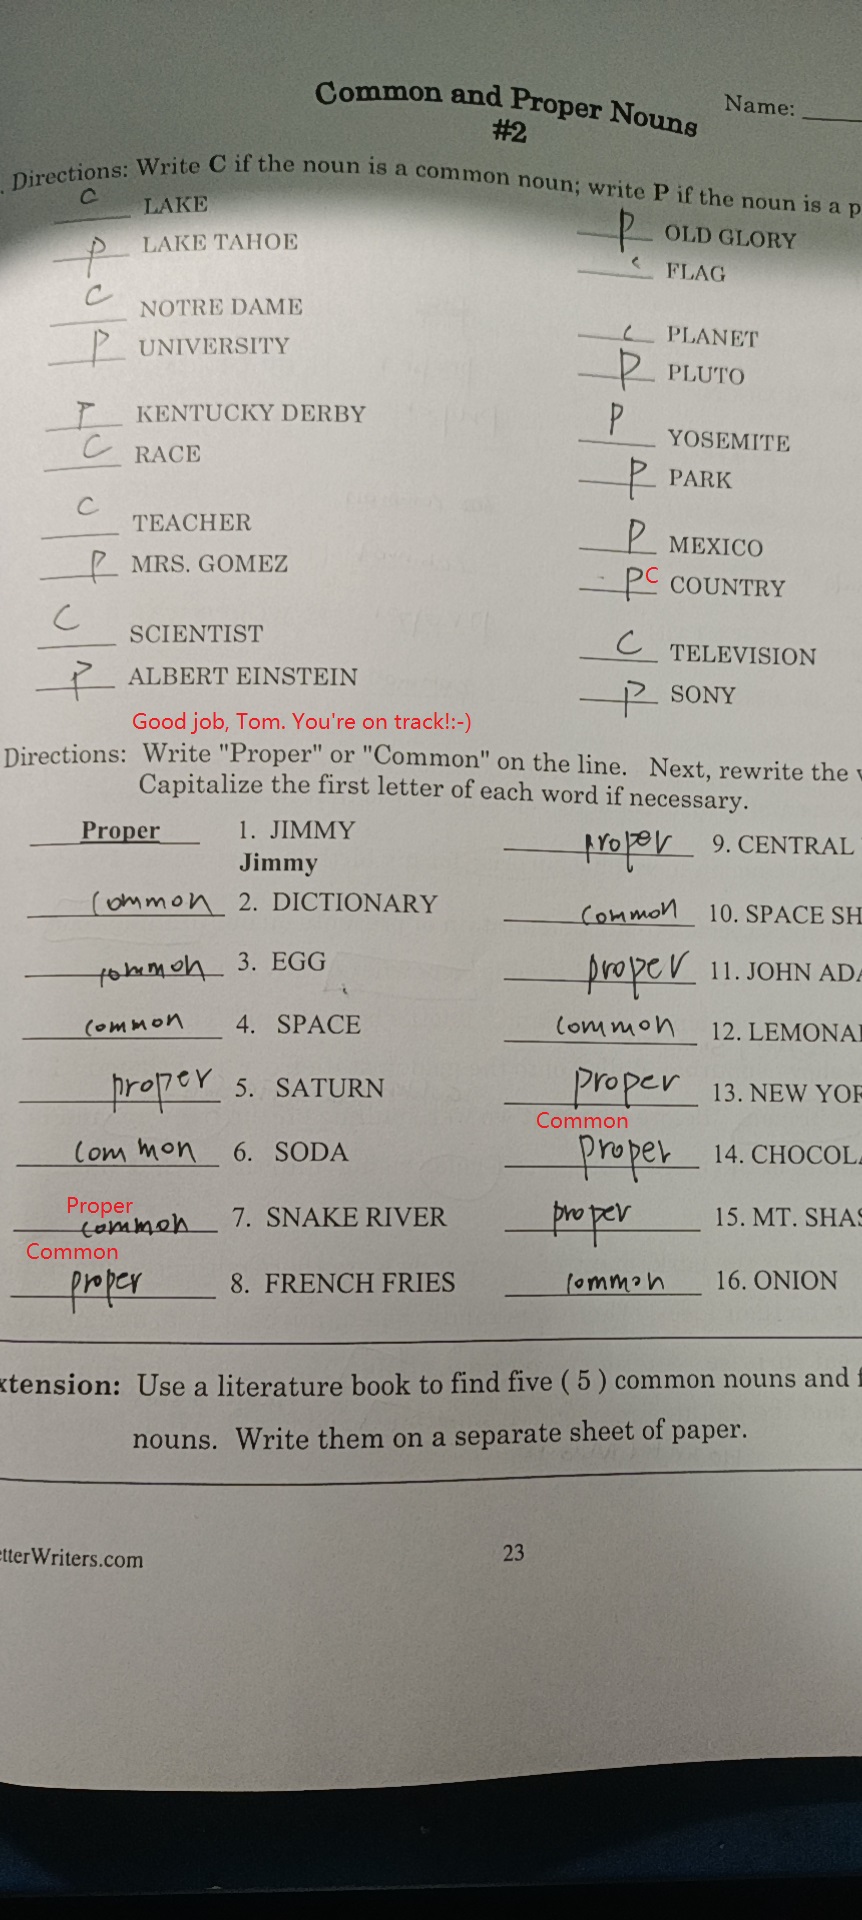 Common and Proper Nouns
#2
Name:
Directions: Write C if the noun is a common noun; write P if the noun is a p
C LAKE
P LAKE TAHOE
C NOTRE DAME
P UNIVERSITY
P KENTUCKY DERBY
C RACE
C TEACHER
P MRS. GOMEZ
C SCIENTIST
P ALBERT EINSTEIN
P OLD GLORY
c FLAG
c PLANET
P PLUTO
P YOSEMITE
P PARK
P MEXICO
P C COUNTRY
C TELEVISION
P SONY
Good job, Tom. You're on track!:-)
Directions: Write "Proper" or "Common" on the line. Next, rewrite the
Capitalize the first letter of each word if necessary.
Proper 1. JIMMY
Jimmy
common 2. DICTIONARY
common 3. EGG
common 4. SPACE
proper 5. SATURN
common 6. SODA
Proper
common 7. SNAKE RIVER
Common
proper 8. FRENCH FRIES
proper 9. CENTRAL
common 10. SPACE SH
proper 11. JOHN ADA
common 12. LEMONA
proper 13. NEW YOR
Common
proper 14. CHOCOL
proper 15. MT. SHAS
common 16. ONION
xtension: Use a literature book to find five ( 5 ) common nouns and f
nouns. Write them on a separate sheet of paper.
etterWriters.com
23